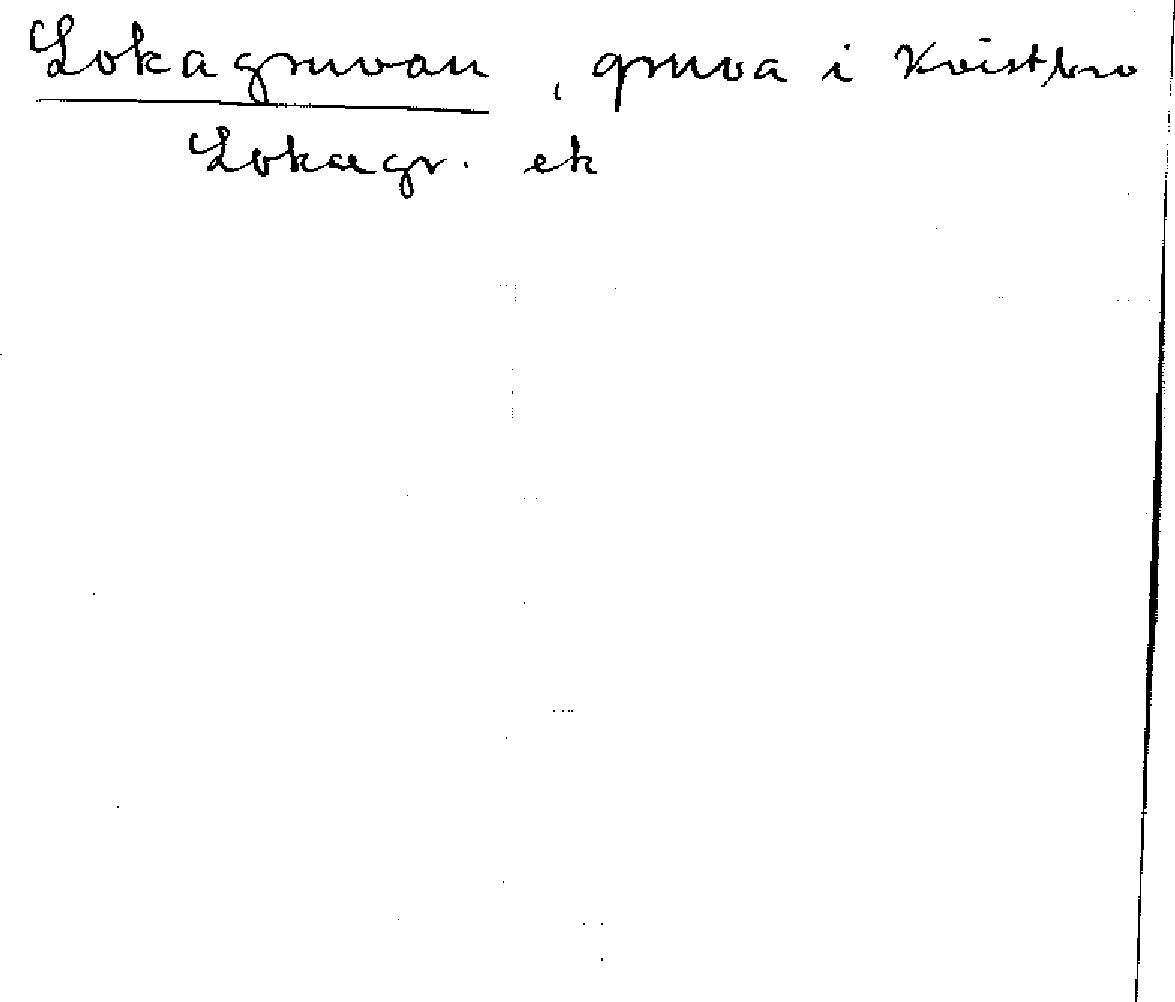 Lokagruvan, gruva i Kvistbro
Lokagr. ek